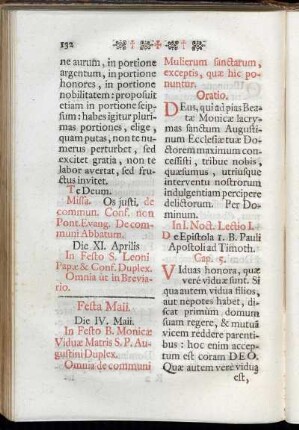 132
ne aurum, in portione
argentum, in portione
honores, in portione
nobilitatem: proposuit
etiam in portione seip-
sum: habes igitur pluri-
mas portiones, elige,
quam putas, non te nu-
merus perturbet, sed
excitet gratia, non te
labor avertat, sed fru-
ctus invitet.
Te Deum.
Missa. Os justi, de
commun. Conf. non
Pont. Evang. De com-
muni Abbatum.
Die XI. Aprilis
In Festo S. Leoni
Papæ & Conf. Duplex.
Omnia ut in Brevia-
rio.
Festa Maii.
Die IV. Maii.
In Festo B. Monicæ
Viduæ Matris S. P. Au-
gustini Duplex.
Omnia de communi
Mulierum sanctarum,
exceptis, quæ hic po-
nuntur.
Oratio.
DEus, qui ad pias Bea-
tæ Monicæ lacry-
mas sanctum Augusti-
num Ecclesiæ tuæ Do-
ctorem maximum con-
cessisti, tribue nobis,
quæsumus, utriusque
interventu nostrorum
indulgentiam percipere
delictorum. Per Do-
minum.
In I. Noct. Lectio I.
De Epistola 1. B. Pauli
Apostoli ad Timoth.
Cap. 5.
VIduas honora, quæ
verè viduæ sunt. Si
qua autem vidua filios,
aut nepotes habet, di-
scat primùm domum
suam regere, & mutuâ
vicem reddere parenti-
bus: hoc enim acce-
ptum est coram DEO.
Quæ autem verè vidua
est,